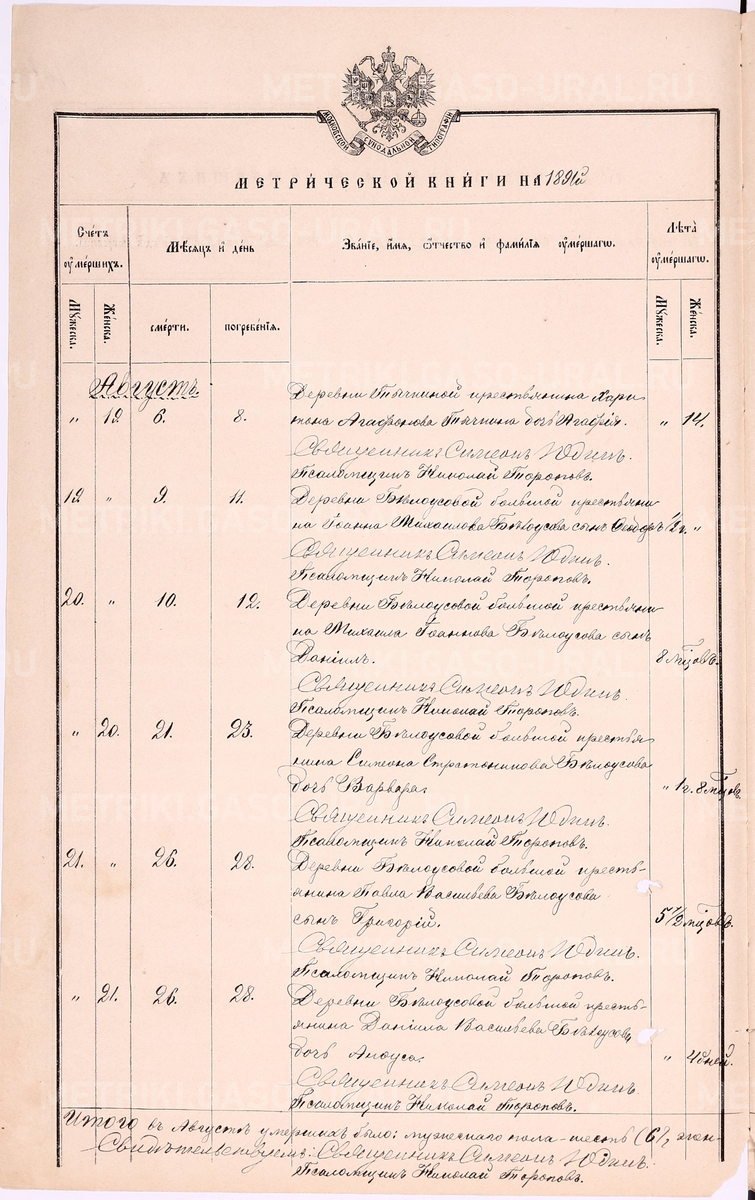 МОСКОВСКОЙ СѴНОДАЛЬНОЙ ТИПОГРАФІИ
МЕТРИ́ЧЕСКОЙ КНИ́ГИ НА 1891й
Сче́тъ ᲂу҆ме́ршихъ.
Мѣ́сяцъ и҆ де́нь
Зва́ніе, и҆́мя, ѻ҆́тчество и҆ фами́лія ᲂу҆ме́ршагѡ.
Лѣта̀ ᲂу҆ме́ршагѡ.
Мꙋжеска. Же́нска. сме́рти. погребе́нія. Мꙋжеска. Же́нска.
Августъ.
Деревни Тычкиной крестьянина Хари-
„ 19. 6. 8. тона Агафонова Тычкина дочь Агафія. „ 14.
Священникъ Симеонъ Юдинъ.
Псаломщикъ Николай Тороповъ.
19 „ 9. 11. Деревни Бѣлоусовой большой крестьяни-
на Іоанна Михаилова Бѣлоусова сынъ Ѳеодоръ 1/2 г. „
Священникъ Симеонъ Юдинъ.
Псаломщикъ Николай Тороповъ.
20. „ 10. 12. Деревни Бѣлоусовой большой крестьяни-
на Михаила Іоаннова Бѣлоусова сынъ
Даніилъ. 8 мцовъ.
Священникъ Симеонъ Юдинъ.
Псаломщикъ Николай Тороповъ.
„ 20. 21. 23. Деревни Бѣлоусовой большой крестья-
нина Симона Стратоникова Бѣлоусова
дочь Варвара. „ 1 г. 8 мцовъ
Священникъ Симеонъ Юдинъ.
Псаломщикъ Николай Тороповъ.
21. „ 26. 28. Деревни Бѣлоусовой большой кресть-
янина Павла Васильева Бѣлоусова
сынъ Григорій. 5 1/2 мцовъ.
Священникъ Симеонъ Юдинъ.
Псаломщикъ Николай Тороповъ.
„ 21. 26. 28. Деревни Бѣлоусовой большой кресть-
янина Даніила Васильева Бѣлоусова
дочь „ 4 дней.
Священникъ Симеонъ Юдинъ.
Псаломщикъ Николай Тороповъ.
Итого въ Августѣ умершихъ было: мужескаго пола – шесть (6), жен-
Свидѣтельствуемъ: Священникъ Симеонъ Юдинъ.
Псаломщикъ Николай Тороповъ.